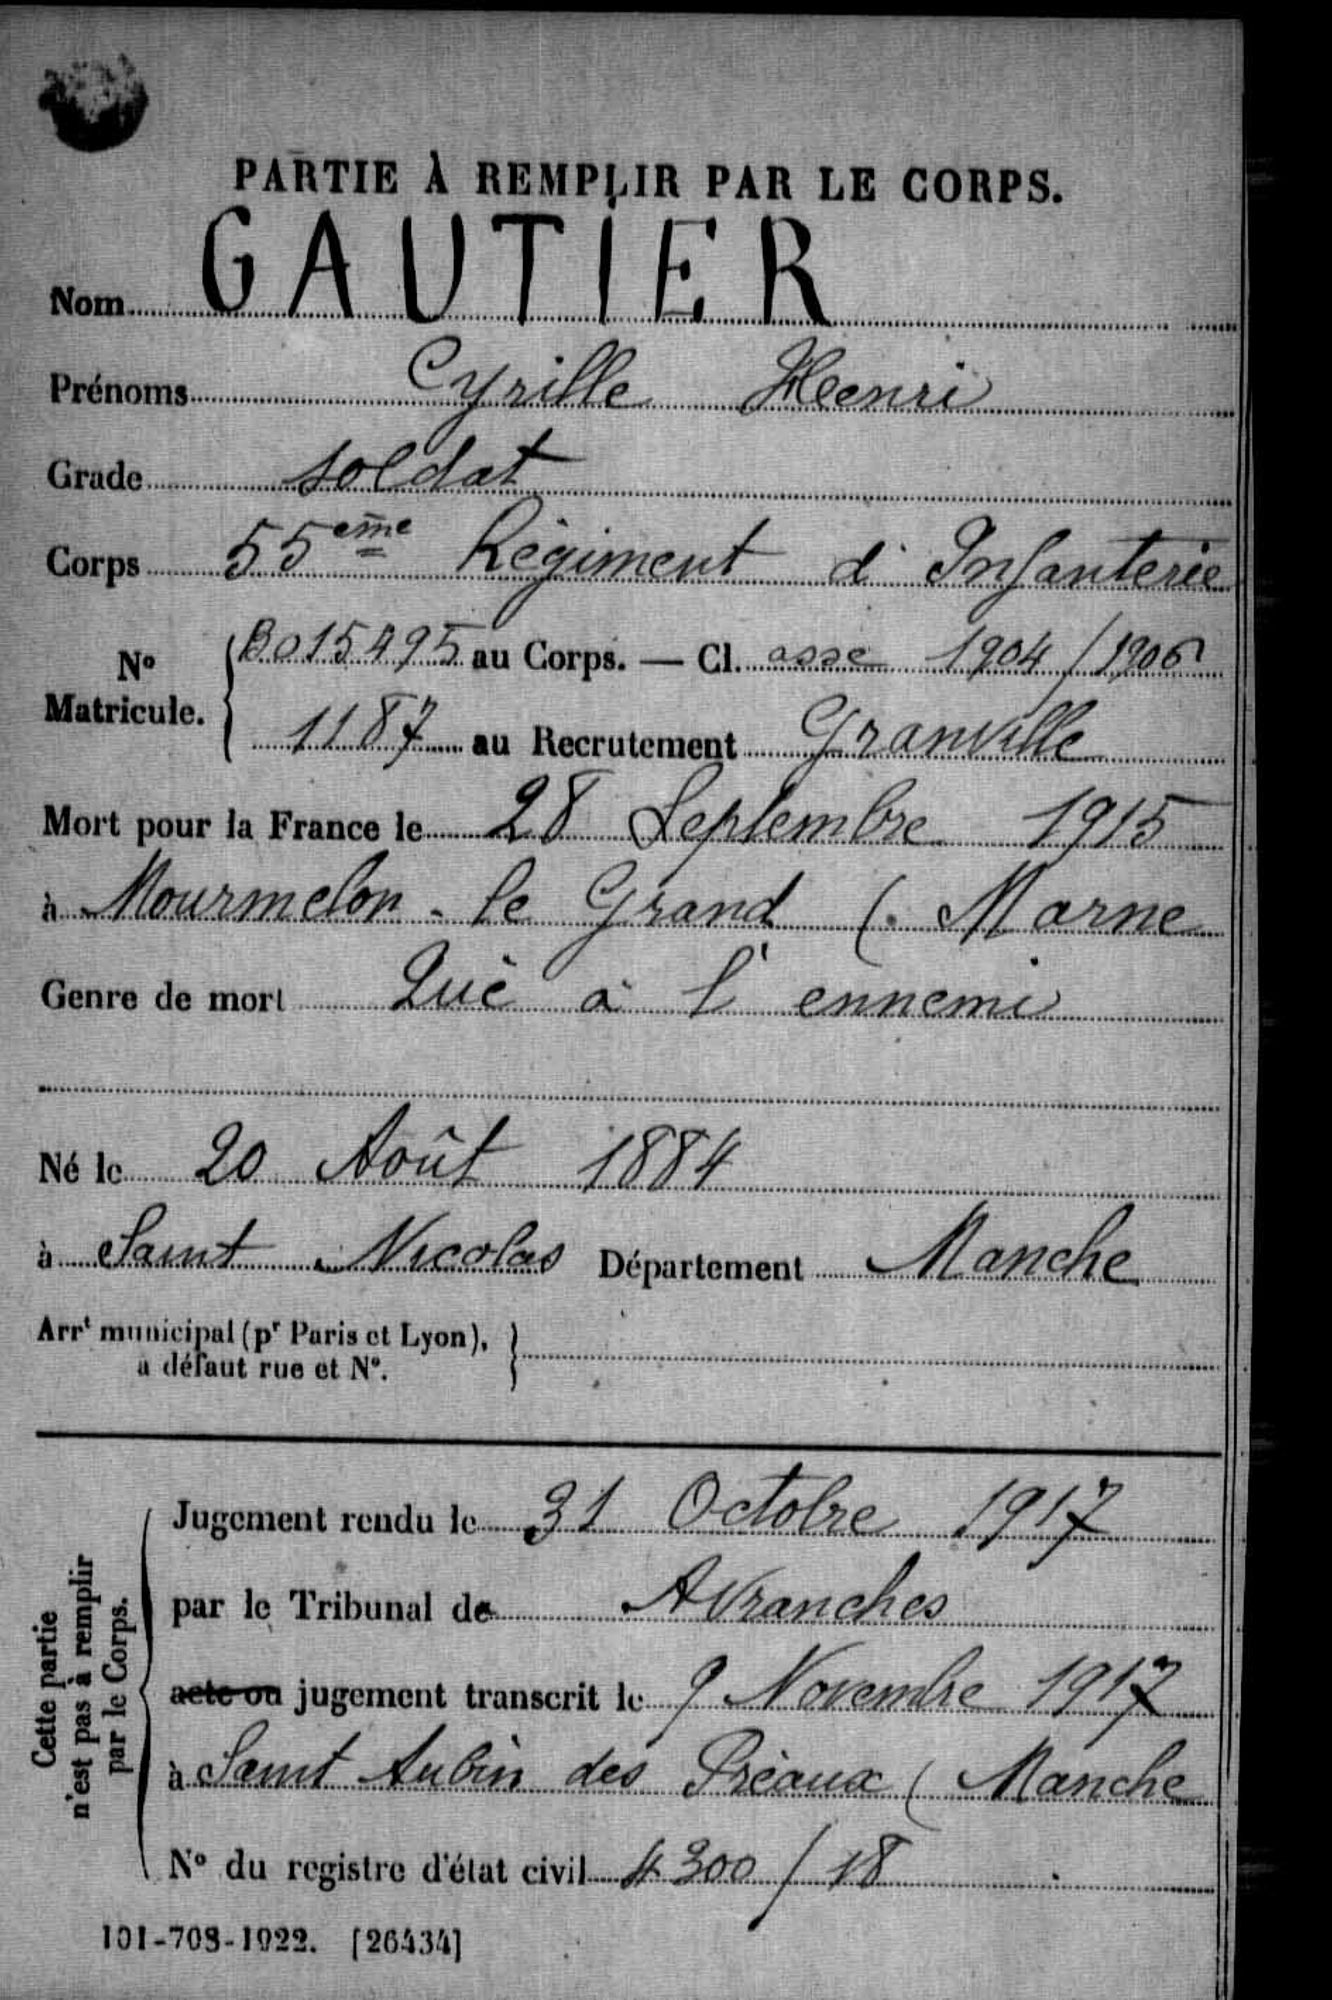 PARTIE À REMPLIR PAR LE CORPS.
Nom GAUTIER
Prénoms Cyrille Henri
Grade soldat
Corps 55ème Régiment d'Infanterie
N° Matricule. { B015495 au Corps. — Cl. asse 1904/1906
1187 au Recrutement Granville
Mort pour la France le 28 Septembre 1915
à Mourmelon-le Grand (Marne
Genre de mort Tué à l'ennemi
Né le 20 Août 1884
à Saint Nicolas Département Manche
Arrt municipal (pr Paris et Lyon), }
à défaut rue et N°.
Cette partie
n'est pas à remplir
par le Corps.
Jugement rendu le 31 Octobre 1917
par le Tribunal de Avranches
acte ou jugement transcrit le 9 Novembre 1917
à Saint Aubin des Préaux (Manche
N° du registre d'état civil 4300/18
101-708-1922. [26434]